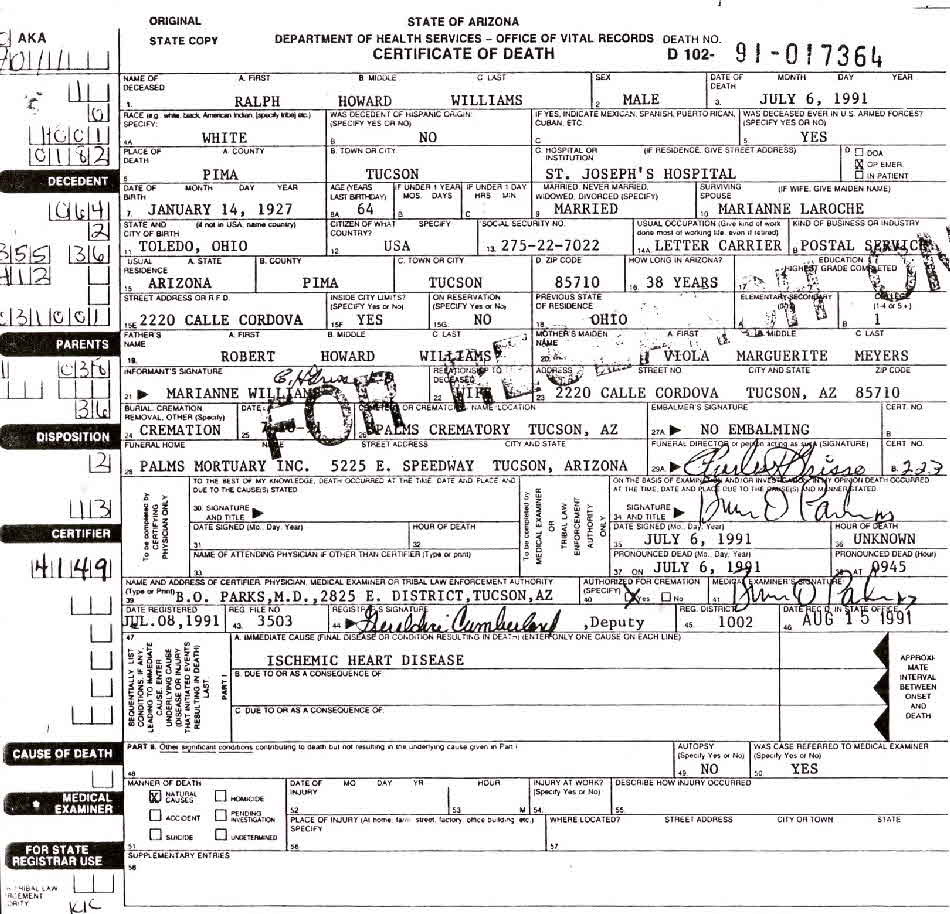 ORIGINAL
STATE OF ARIZONA
AKA
STATE COPY
DEPARTMENT OF HEALTH SERVICES – OFFICE OF VITAL RECORDS
DEATH NO.
CERTIFICATE OF DEATH
D 102- 91-017364
NAME OF DECEASED A. FIRST B. MIDDLE C. LAST SEX DATE OF DEATH MONTH DAY YEAR
1. RALPH HOWARD WILLIAMS 2. MALE 3. JULY 6, 1991
RACE (e.g. white, black, American Indian, (specify tribe) etc.) SPECIFY: WAS DECEDENT OF HISPANIC ORIGIN: (SPECIFY YES OR NO) IF YES, INDICATE MEXICAN, SPANISH, PUERTO RICAN, CUBAN, ETC. WAS DECEASED EVER IN U.S. ARMED FORCES? (SPECIFY YES OR NO)
4A WHITE B NO C. 5. YES
PLACE OF DEATH A. COUNTY B. TOWN OR CITY C. HOSPITAL OR INSTITUTION (IF RESIDENCE, GIVE STREET ADDRESS) D. DOA
X OP EMER.
IN PATIENT
6 PIMA TUCSON ST. JOSEPH'S HOSPITAL
DECEDENT
DATE OF BIRTH MONTH DAY YEAR AGE (YEARS LAST BIRTHDAY) IF UNDER 1 YEAR MOS. DAYS IF UNDER 1 DAY HRS MIN MARRIED, NEVER MARRIED, WIDOWED, DIVORCED (SPECIFY) SURVIVING SPOUSE (IF WIFE, GIVE MAIDEN NAME)
7. JANUARY 14, 1927 8A 64 B C 9 MARRIED 10 MARIANNE LAROCHE
STATE AND CITY OF BIRTH (if not in USA, name country) CITIZEN OF WHAT COUNTRY? SPECIFY SOCIAL SECURITY NO. USUAL OCCUPATION (Give kind of work done most of working life, even if retired) KIND OF BUSINESS OR INDUSTRY
11 TOLEDO, OHIO 12 USA 13. 275-22-7022 14A LETTER CARRIER B POSTAL SERVICE
USUAL RESIDENCE A. STATE B. COUNTY C. TOWN OR CITY D. ZIP CODE HOW LONG IN ARIZONA? EDUCATION HIGHEST GRADE COMPLETED
15 ARIZONA PIMA TUCSON 85710 16 38 YEARS 17
STREET ADDRESS OR R.F.D. INSIDE CITY LIMITS? (SPECIFY Yes or No) ON RESERVATION (SPECIFY Yes or No) PREVIOUS STATE OF RESIDENCE ELEMENTARY-SECONDARY COLLEGE (1-4 or 5+)
15E 2220 CALLE CORDOVA 15F YES 15G. NO 18. OHIO A B 1
PARENTS
FATHER'S NAME A. FIRST B. MIDDLE C. LAST MOTHER'S MAIDEN NAME A. FIRST B. MIDDLE C. LAST
19. ROBERT HOWARD WILLIAMS 20. VIOLA MARGUERITE MEYERS
INFORMANT'S SIGNATURE RELATIONSHIP TO DECEASED ADDRESS STREET NO. CITY AND STATE ZIP CODE
21 MARIANNE WILLIAMS 22 23 2220 CALLE CORDOVA TUCSON, AZ 85710
BURIAL, CREMATION REMOVAL, OTHER (Specify) DATE CEMETERY OR CREMATORY NAME/LOCATION EMBALMER'S SIGNATURE CERT. NO.
24 CREMATION 25 26 PALMS CREMATORY TUCSON, AZ 27A NO EMBALMING B
FOR
DISPOSITION
FUNERAL HOME NAME STREET ADDRESS CITY AND STATE FUNERAL DIRECTOR or person acting as such (SIGNATURE) CERT. NO.
28 PALMS MORTUARY INC. 5225 E. SPEEDWAY TUCSON, ARIZONA 29A B. 223
To be completed by CERTIFYING PHYSICIAN ONLY
TO THE BEST OF MY KNOWLEDGE, DEATH OCCURRED AT THE TIME, DATE AND PLACE AND DUE TO THE CAUSE(S) STATED
30. SIGNATURE AND TITLE
DATE SIGNED (Mo., Day, Year) HOUR OF DEATH
31 32
NAME OF ATTENDING PHYSICIAN IF OTHER THAN CERTIFIER (Type or print)
33
To be completed by MEDICAL EXAMINER OR TRIBAL LAW ENFORCEMENT AUTHORITY ONLY
ON THE BASIS OF EXAMINATION AND/OR INVESTIGATION, IN MY OPINION DEATH OCCURRED AT THE TIME, DATE AND PLACE AND DUE TO THE CAUSE(S) AND MANNER STATED.
SIGNATURE 34 AND TITLE
DATE SIGNED (Mo., Day, Year) HOUR OF DEATH
35 JULY 6, 1991 36 UNKNOWN
PRONOUNCED DEAD (Mo., Day, Year) PRONOUNCED DEAD (Hour)
37 ON JULY 6, 1991 38 AT 0945
CERTIFIER
NAME AND ADDRESS OF CERTIFIER, PHYSICIAN, MEDICAL EXAMINER OR TRIBAL LAW ENFORCEMENT AUTHORITY (Type or Print) AUTHORIZED FOR CREMATION (SPECIFY) MEDICAL EXAMINER'S SIGNATURE
39 B.O. PARKS,M.D.,2825 E. DISTRICT,TUCSON,AZ 40 X Yes No 41
DATE REGISTERED REG. FILE NO REGISTRAR'S SIGNATURE REG. DISTRICT DATE REC'D. IN STATE OFFICE
42 JUL.08,1991 43. 3503 44 Geraldine Cumberland ,Deputy 45 1002 46 AUG 15 1991
47 A. IMMEDIATE CAUSE (FINAL DISEASE OR CONDITION RESULTING IN DEATH) (ENTER ONLY ONE CAUSE ON EACH LINE)
ISCHEMIC HEART DISEASE
B. DUE TO OR AS A CONSEQUENCE OF
C. DUE TO OR AS A CONSEQUENCE OF:
SEQUENTIALLY LIST CONDITIONS, IF ANY, LEADING TO IMMEDIATE CAUSE. ENTER UNDERLYING CAUSE (DISEASE OR INJURY THAT INITIATED EVENTS RESULTING IN DEATH) LAST
PART I
APPROXI-
MATE
INTERVAL
BETWEEN
ONSET
AND
DEATH
CAUSE OF DEATH
PART II. Other significant conditions contributing to death but not resulting in the underlying cause given in Part I AUTOPSY (Specify Yes or No) WAS CASE REFERRED TO MEDICAL EXAMINER (Specify Yes or No)
48 49 NO 50 YES
MEDICAL EXAMINER
MANNER OF DEATH DATE OF INJURY MO DAY YR HOUR INJURY AT WORK? (Specify Yes or No) DESCRIBE HOW INJURY OCCURRED
X NATURAL CAUSES HOMICIDE 52 53 M 54. 55
ACCIDENT PENDING INVESTIGATION PLACE OF INJURY (At home, farm, street, factory, office building, etc.) SPECIFY WHERE LOCATED? STREET ADDRESS CITY OR TOWN STATE
51 SUICIDE UNDETERMINED 56 57
FOR STATE REGISTRAR USE
SUPPLEMENTARY ENTRIES
58